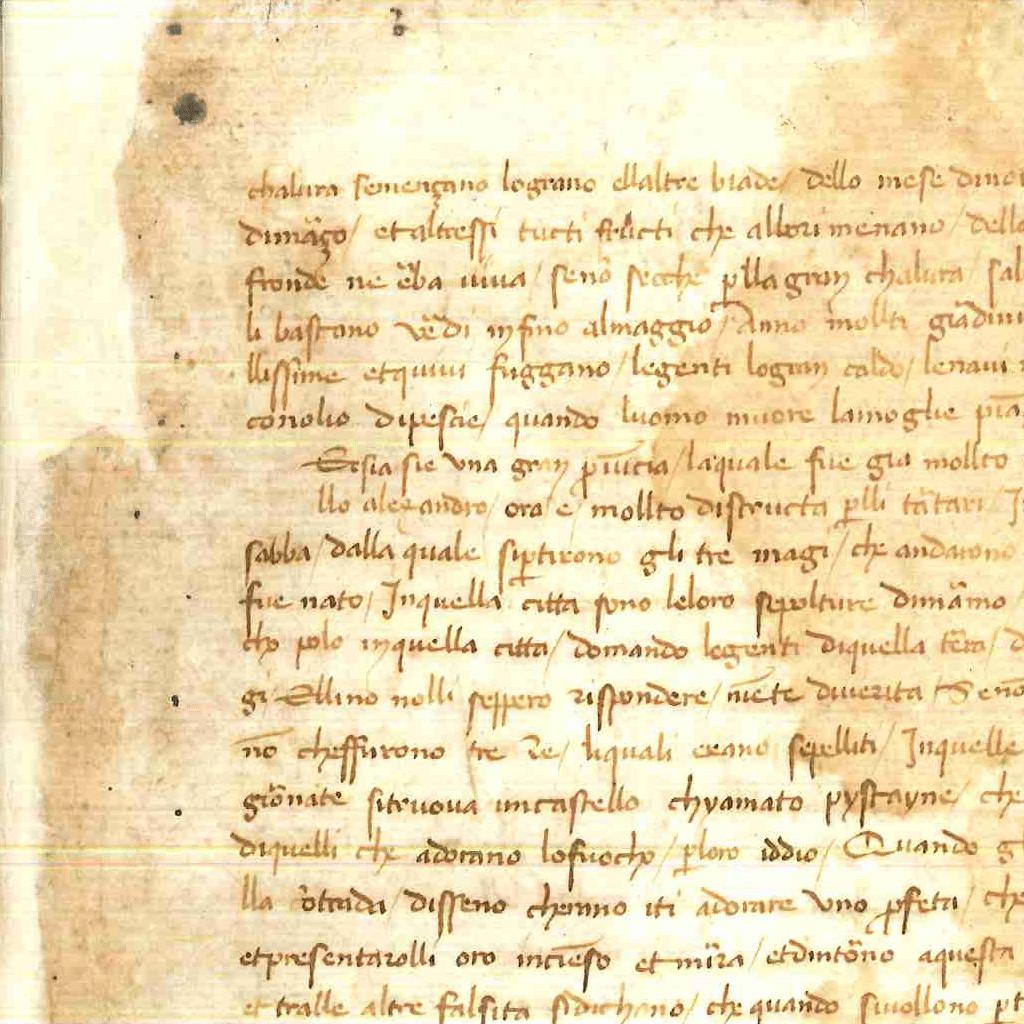 chalura semençano lograno ellaltre biade / dello mese dinov
dimãço / et altressi tucti fructi che allbori menano / dello
fronde ne ẽba viva / senõ secche p̱lla gran chalura / sal
li bastano vẽdi infino almaggio / Anno mollti giãdini
llissime etquivi fuggano / legenti logran caldo / lenavi
conolio dipescie / quando luomo muore lamoglie piã
Ersia sie una gran p̱ĩvcia / laquale fue gia mollto
llo alexandro / ora e / mollto distructa p̱lli tãtari / I
sabba / dalla quale sip̱tirono gli tre magi / che andarono
fue nato / Inquella citta sono leloro sepolture dimãmo /
cho polo inquella citta / domando legenti diquella tẽra / d
gi Ellino nolli seppero rispondere / niẽte diverita / Senõ
nõ cheffurono tre Re / liquali erano sepelliti / Inquelle
giõnate sitruova uncastello chyamato pystayne / che
diquelli che adorano lofuocho / p̱loro iddio / Quando g
lla cõtrada / disseno cherano iti adorare uno p̱feta / che
etpresentarolli oro inciẽso et mĩra / etdintõno aquesta
et tralle altre falsita sidichano / che quando sivollono p̱t